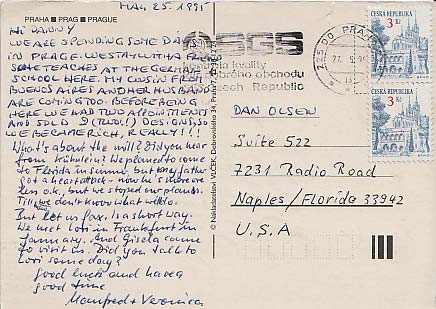 MAY 25. 1995
PRAHA ■ PRAG ■ PRAGUE
HI DANNY
WE ARE SPENDING SOME DAYS
IN PRAGE. WE STAY WITH A FRIEND
SHE TEACHES AT THE GERMAN
SCHOOL HERE. MY COUSIN FROM
BUENOS AIRES AND HER HUSBAND
ARE COMING TOO. BEFORE BEING
HERE WE HAD TWO APPOINTMENTS
AND SOLD 2 (TWO!) DESIGNS, SO
WE BECAME RICH, REALLY!!!
What's about the mill? Did you hear
from Kühnlein? We planned to come
to Florida in summer, but my father
got a heart attack - now he's more or
less o.k., but we stopped our plans.
Till we don't know what will do.
But let us fax. Is a short way.
We meet Lori in Frankfurt in
January. And Gisela came
to visit us. Did you talk to
Lori some day?
good luck and have a
good time
Manfred + Veronica
© Nakladatelství VLČEK, Dobrovského 34, Praha 7
SGS
kvality
obchodu
Czech Republic
225 00 PRAHA
ČESKÁ REPUBLIKA
3 Kč
ČESKÁ REPUBLIKA
3 Kč
DAN OLSEN
Suite 522
7231 Radio Road
Naples/Florida 33942
U.S.A